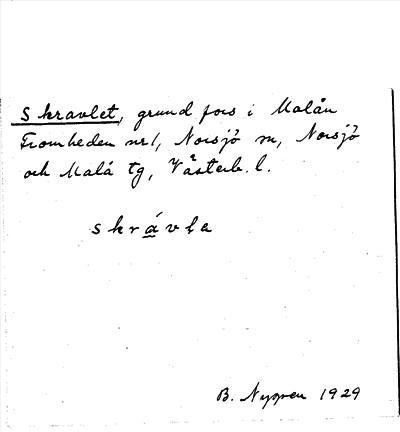 Skravlet, grund fors i Malån
Fromheden nr 1, Norsjö sn, Norsjö
och Malå tg, Västerb. l.
skrávle
B. Nygren 1929